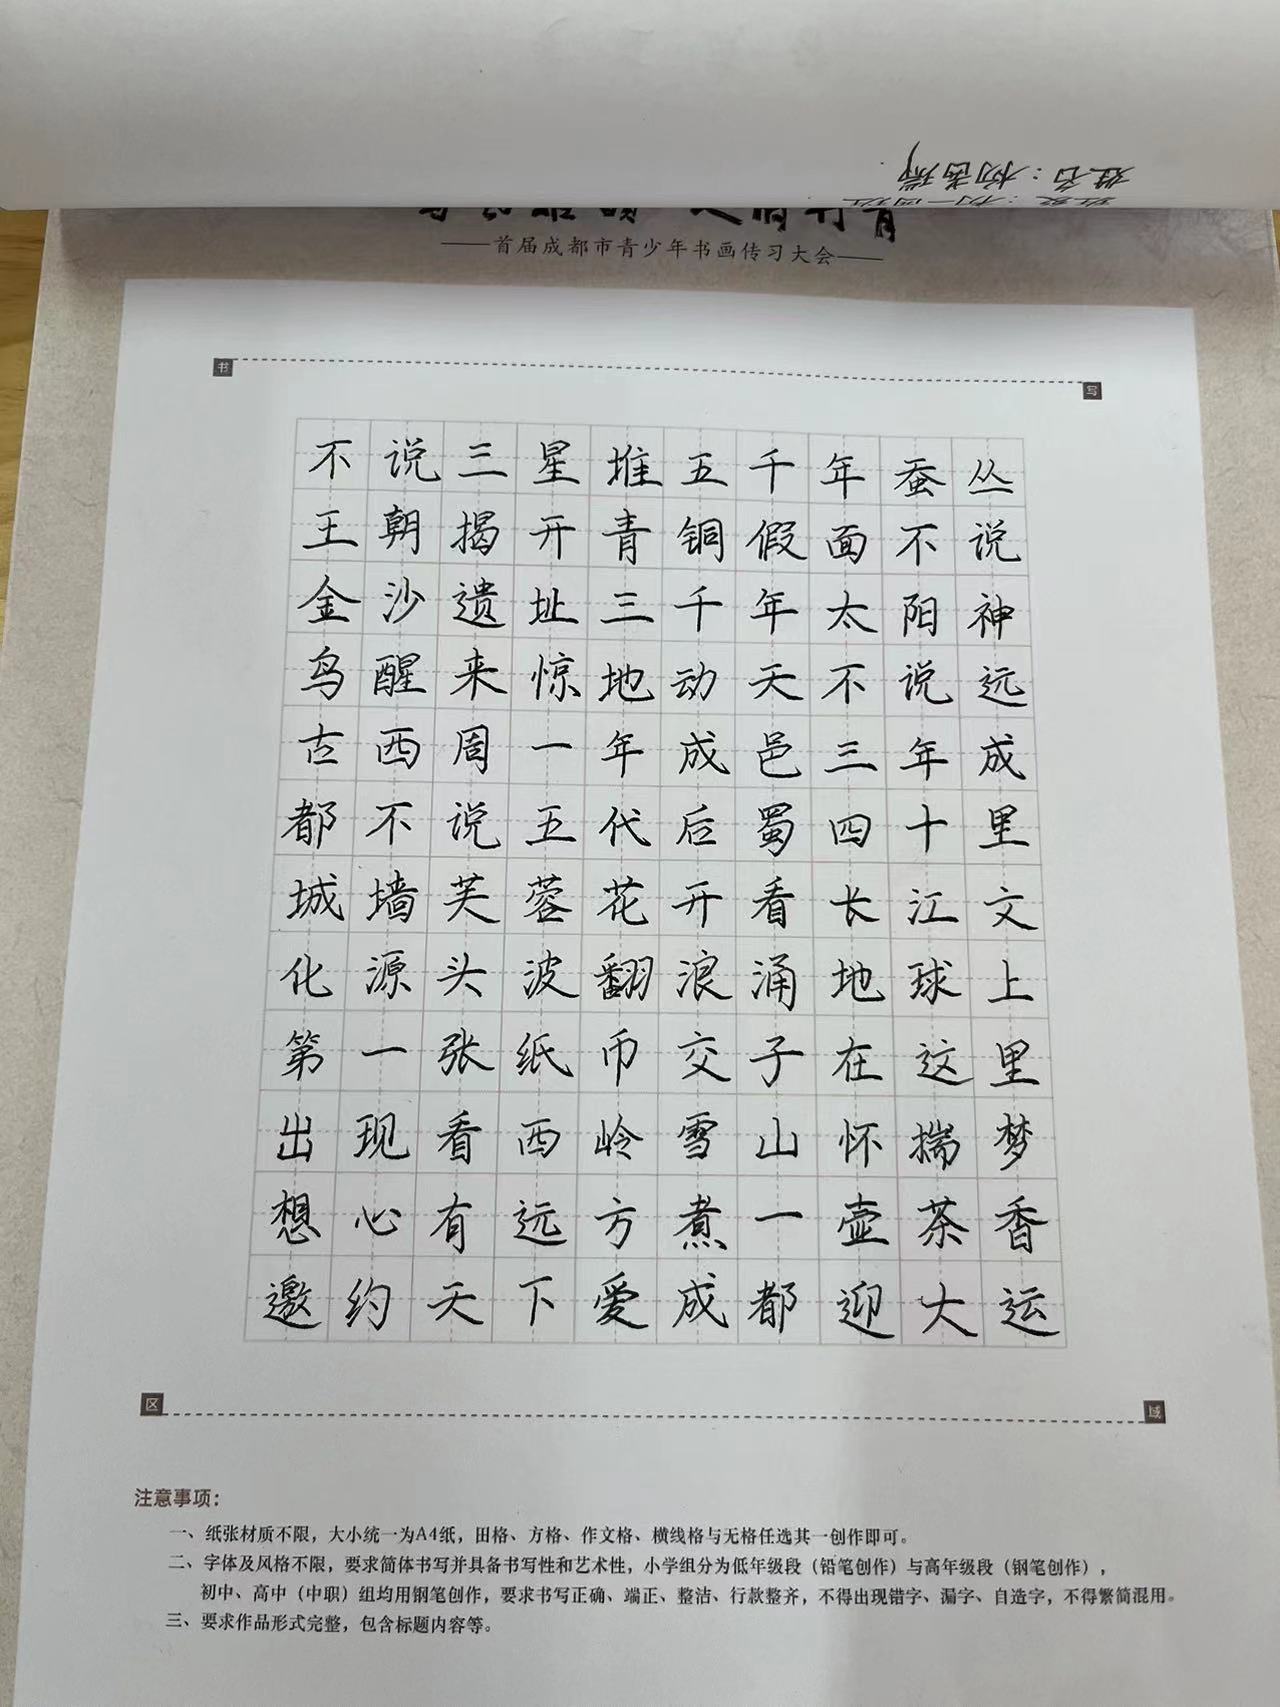 姓名：杨
班级：初一四班
——首届成都市青少年书画传习大会——
书
写
不说三星堆五千年蚕丛
王朝揭开青铜假面不说
金沙遗址三千年太阳神
鸟醒来惊地动天不说远
古西周一年成邑三年成
都不说五代后蜀四十里
城墙芙蓉花开看长江文
化源头波翻浪涌地球上
第一张纸币交子在这里
出现看西岭雪山怀揣梦
想心有远方煮一壶茶香
邀约天下爱成都迎大运
区
域
注意事项：
一、纸张材质不限，大小统一为A4纸，田格、方格、作文格、横线格与无格任选其一创作即可。
二、字体及风格不限，要求简体书写并具备书写性和艺术性，小学组分为低年级段（铅笔创作）与高年级段（钢笔创作），
初中、高中（中职）组均用钢笔创作，要求书写正确、端正、整洁、行款整齐，不得出现错字、漏字、自造字，不得繁简混用。
三、要求作品形式完整，包含标题内容等。